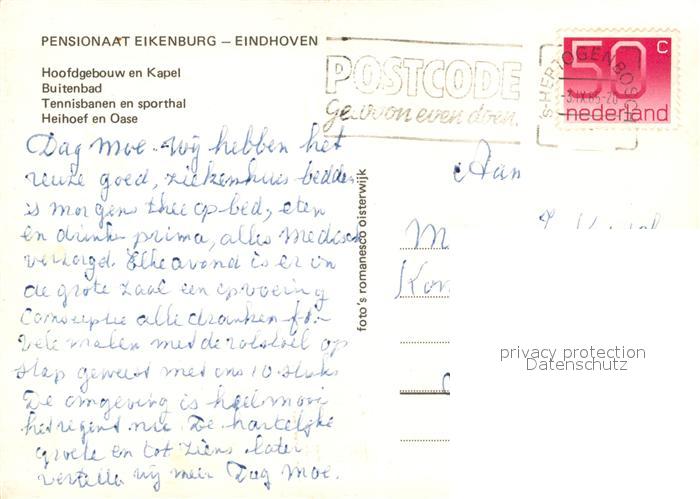 PENSIONAAT EIKENBURG – EINDHOVEN
Hoofdgebouw en Kapel
Buitenbad
Tennisbanen en sporthal
Heihoef en Oase
POSTCODE
gewoon even doen.
'S-HERTOGENBOSCH
-3.IX.85-20
50 c
nederland
Dag Moe. Wij hebben het
reuze goed, ziekenhuis bedden
is morgens thee op bed, eten
en drinken prima, alles medisch
verzorgd. Elke avond is er in
de grote zaal een opvoering
Consumptie alle dranken
Vele malen met de rolstoel op
stap geweest met ons 10 stuks
De omgeving is heel mooi
het regent nu. De hartelijke
groete en tot ziens later
vertelle wij meer Dag Moe.
foto's romanesco oisterwijk
Aan
M
Kon
privacy protection
Datenschutz